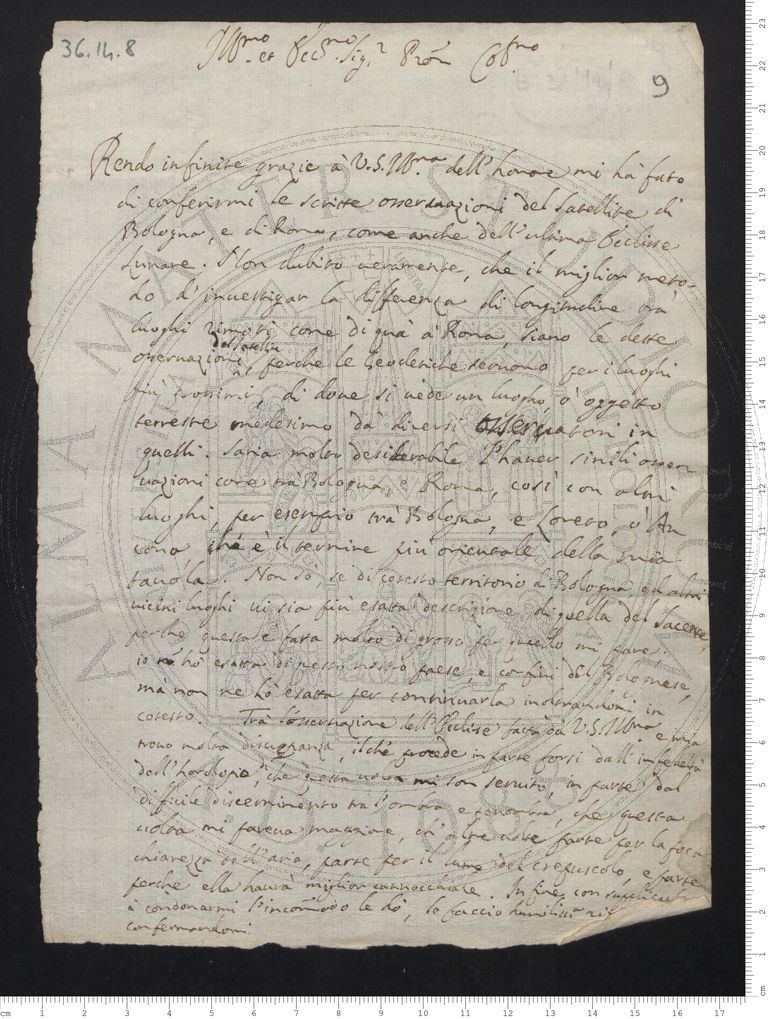 36.14.8
Ill.mo et Ecc.mo Sig.r Pron Col.mo
9
Rendo infinite grazie à V.S.Ill.ma dell'honore mi hà fato
di conferirmi le scritte osseruazioni del Satellite di
Bologna, e di Roma, come anche dell'ultima Ecclisse
Lunare. Non dubito ueramente, che il miglior meto-
do d'inuestigar la differenza di longitudine trà
luoghi rimoti come di quà à Roma, siano le dette
osseruazioni
perche le Geodetiche seruono per i luoghi
più prossimi, di doue si uede un luogho ò oggetto
terrestre medesimo dà diuersi osseruatori in
quelli. Saria molto desiderabile l'hauer simili osser
uazioni come trà Bologna, e Roma, così con altri
luoghi, per esempio trà Bologna, e Loreto, ò An
cona che è il termine più orientale della mia
tauola. Non sò, se di cotesto territorio di Bologna ed altri
uicini luoghi ui sia più esatta descrizione di quella del
perche questa è fatta molto di grosso per quello mi pare.
io ne hò esatta di nostro paese, e confini del Bolognese,
mà non ne hò esatta per continuarla inoltrandomi in
cotesto. Trà l'osseruazione dell'Ecclisse fatta da V.S.Ill.ma e mia
trouo molta discrepanza, ilche procede in parte forsi dall'
dell'horologio, che questa uolta mi son seruito, in parte dal
difficile discernimento trà l'ombra e penombra, che questa
uolta mi pareua maggiore, parte per la poca
chiarezza dell'aria, parte per il lume del crepuscolo, e parte
perche ella haurà miglior cannocchiale. In fine con
à condonarmi l'incommodo le dò, le faccio
confermandomi